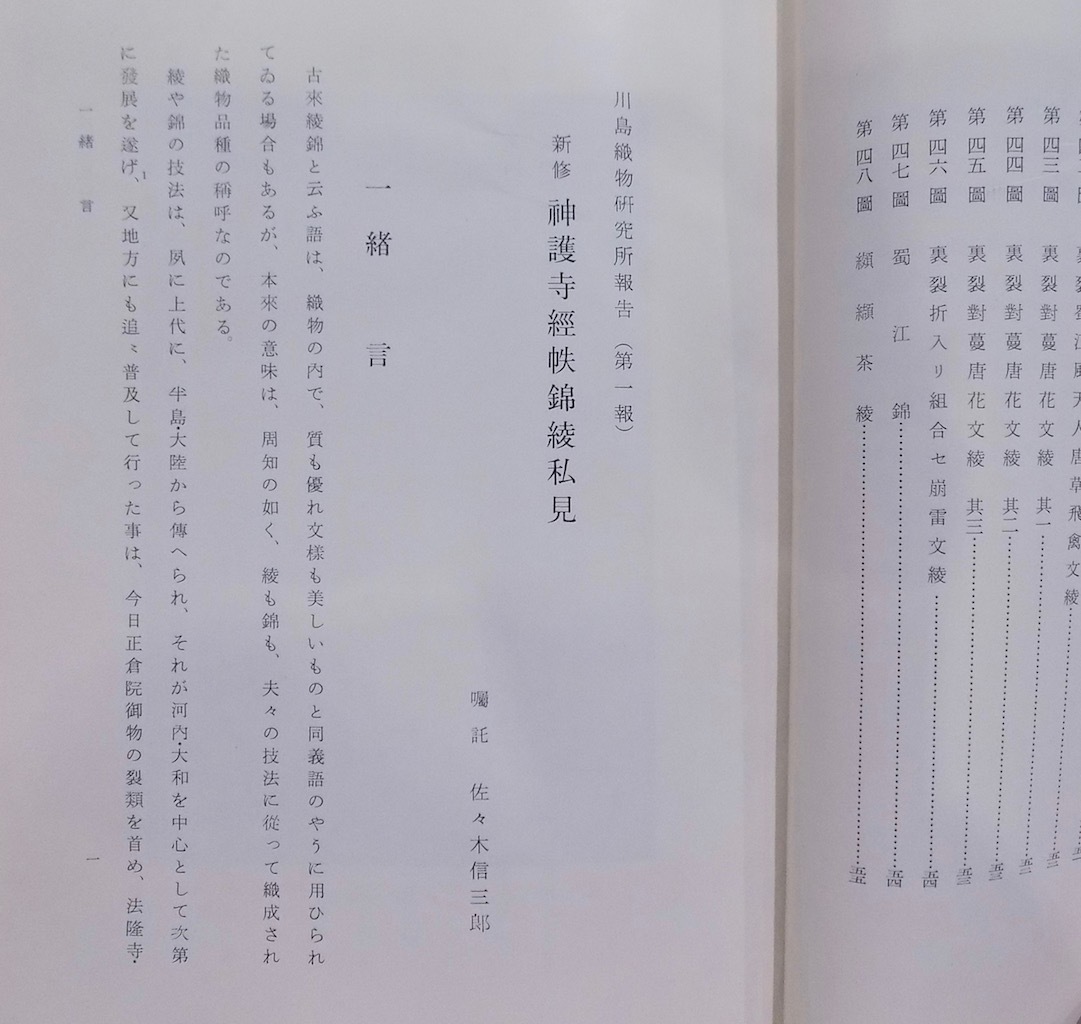 裏裂蜀江風天人唐草飛禽文綾
第四三圖 裏裂對蔓唐花文綾 其一……五三
第四四圖 裏裂對蔓唐花文綾 其二……五三
第四五圖 裏裂對蔓唐花文綾 其三……五三
第四六圖 裏裂折入リ組合セ崩雷文綾……五四
第四七圖 蜀江錦……五四
第四八圖 纐纈茶綾……五五
川島織物研究所報告（第一報）
新修 神護寺經帙錦綾私見
囑託 佐々木信三郎
一 緒言
古來綾錦と云ふ語は、織物の內で、質も優れ文樣も美しいものと同義語のやうに用ひられ
てゐる場合もあるが、本來の意味は、周知の如く、綾も錦も、夫々の技法に從って織成され
た織物品種の稱呼なのである。
綾や錦の技法は、夙に上代に、半島・大陸から傳へられ、それが河內・大和を中心として次第
に發展を遂げ、1又地方にも追〻普及して行った事は、今日正倉院御物の裂類を首め、法隆寺・
一 緒言
一